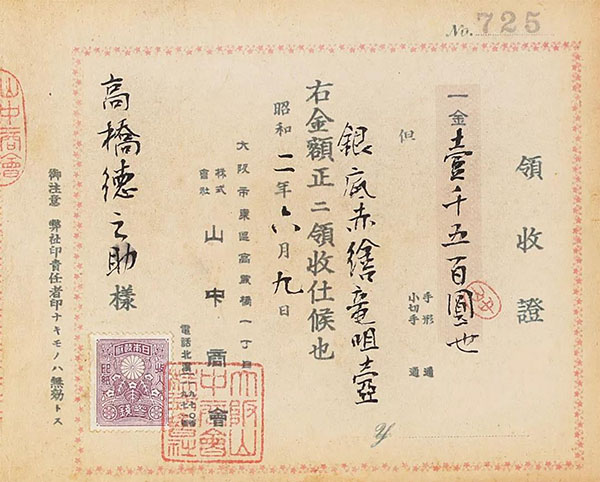 No. 725
領收證
一金壹千五百圓也
手形 通
小切手 通
但
銀㡳赤繪龍咀壺
右金額正ニ領收仕候也
昭和二年六月九日
大阪市東區高麗橋一丁目
株式會社 山中商會
電話北濱
高橋德之助樣
御注意 弊社印責任者印ナキモノハ無効トス
山中商會
大阪山中商會
收入印紙